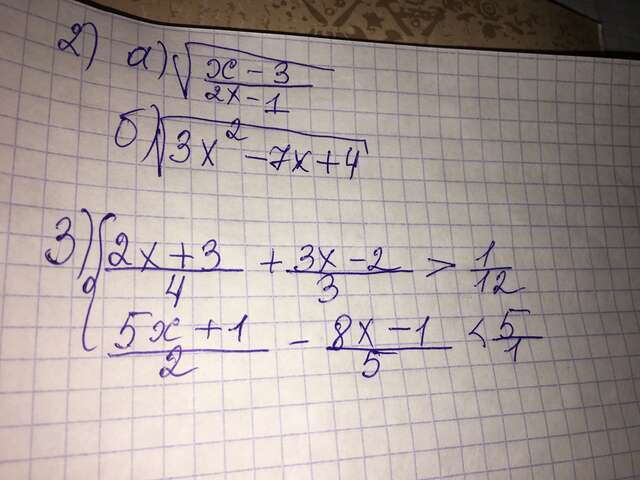 2) а) √(x-3)/(2x-1)
б) √3x²-7x+4
3) { (2x+3)/4 + (3x-2)/3 > 1/12
(5x+1)/2 - (8x-1)/5 < 5/1